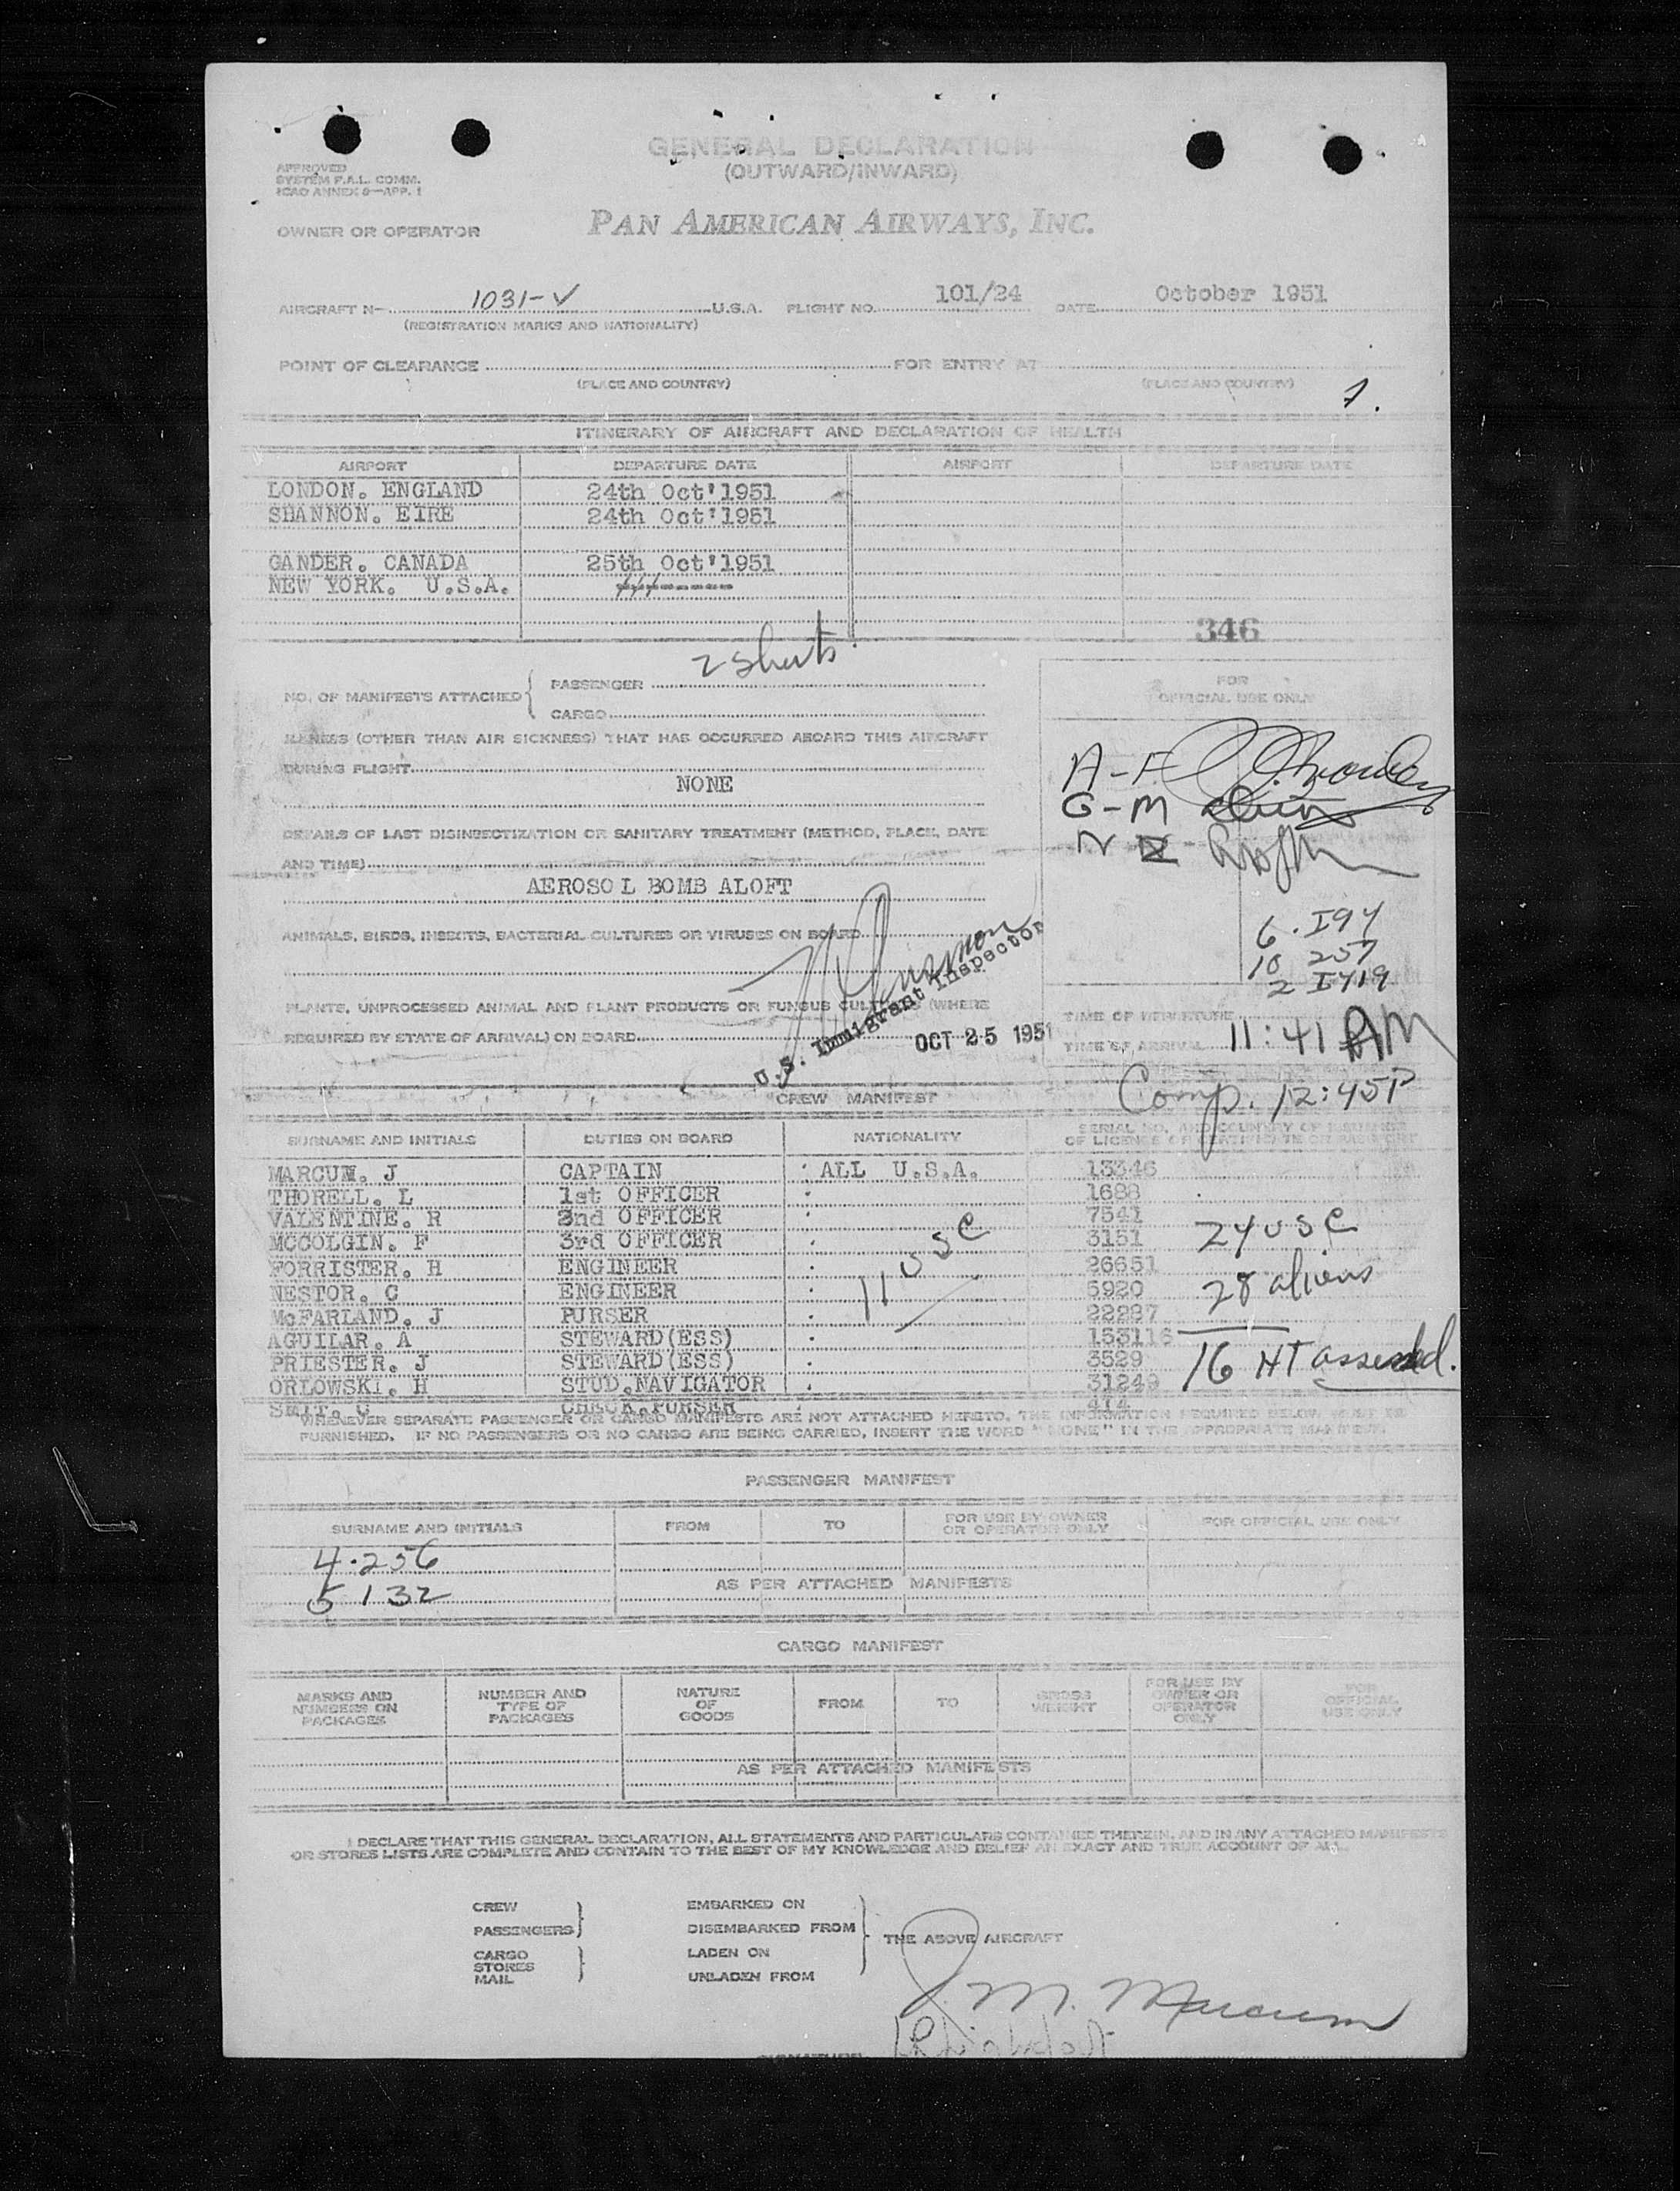 GENERAL DECLARATION
(OUTWARD/INWARD)
APPROVED
SYSTEM F.A.L. COMM.
ICAO ANNEX 9—APP. 1
OWNER OR OPERATOR PAN AMERICAN AIRWAYS, INC.
AIRCRAFT N- 1031-V U.S.A. FLIGHT NO. 101/24 DATE October 1951
(REGISTRATION MARKS AND NATIONALITY)
POINT OF CLEARANCE FOR ENTRY AT
(PLACE AND COUNTRY) (PLACE AND COUNTRY)
1.
ITINERARY OF AIRCRAFT AND DECLARATION OF HEALTH
AIRPORT DEPARTURE DATE AIRPORT DEPARTURE DATE
LONDON. ENGLAND 24th Oct'1951
SHANNON. EIRE 24th Oct'1951
GANDER. CANADA 25th Oct'1951
NEW YORK. U.S.A.
346
2 sheets
NO. OF MANIFESTS ATTACHED { PASSENGER
CARGO
FOR
OFFICIAL USE ONLY
ILLNESS (OTHER THAN AIR SICKNESS) THAT HAS OCCURRED ABOARD THIS AIRCRAFT
DURING FLIGHT
NONE
A-F
G-M
N
DETAILS OF LAST DISINSECTIZATION OR SANITARY TREATMENT (METHOD, PLACE, DATE
AND TIME)
AEROSOL BOMB ALOFT
ANIMALS, BIRDS, INSECTS, BACTERIAL CULTURES OR VIRUSES ON BOARD
6. I94
10 257
2 I419
PLANTS, UNPROCESSED ANIMAL AND PLANT PRODUCTS OR FUNGUS CULTURES (WHERE
REQUIRED BY STATE OF ARRIVAL) ON BOARD
U.S. Immigrant Inspector
OCT 25 1951
TIME OF DEPARTURE
TIME OF ARRIVAL 11:41 AM
Comp. 12:45P
CREW MANIFEST
SURNAME AND INITIALS DUTIES ON BOARD NATIONALITY SERIAL NO. AND COUNTRY OF ISSUANCE
OF LICENSE OR CERTIFICATE OR PASSPORT
MARCUM. J CAPTAIN : ALL U.S.A. 13346
THORELL. L 1st OFFICER : 1688
VALENTINE. R 2nd OFFICER : 7541
MCCOLGIN. F 3rd OFFICER : 3151
FORRISTER. H ENGINEER : 26651
NESTOR. C ENGINEER : 5920
McFARLAND. J PURSER : 22287
AGUILAR. A STEWARD(ESS) : 153116
PRIESTER. J STEWARD(ESS) : 3529
ORLOWSKI. H STUD.NAVIGATOR : 31249
SMIT. C CHECK.PURSER 414
11 USC
24 USC
28 aliens
16 HT assessed.
WHENEVER SEPARATE PASSENGER OR CARGO MANIFESTS ARE NOT ATTACHED HERETO, THE INFORMATION REQUIRED BELOW MUST BE
FURNISHED. IF NO PASSENGERS OR NO CARGO ARE BEING CARRIED, INSERT THE WORD "NONE" IN THE APPROPRIATE MANIFEST.
PASSENGER MANIFEST
SURNAME AND INITIALS FROM TO FOR USE BY OWNER
OR OPERATOR ONLY FOR OFFICIAL USE ONLY
4.256
5 132
AS PER ATTACHED MANIFESTS
CARGO MANIFEST
MARKS AND
NUMBERS ON
PACKAGES NUMBER AND
TYPE OF
PACKAGES NATURE
OF
GOODS FROM TO GROSS
WEIGHT FOR USE BY
OWNER OR
OPERATOR
ONLY FOR
OFFICIAL
USE ONLY
AS PER ATTACHED MANIFESTS
I DECLARE THAT THIS GENERAL DECLARATION, ALL STATEMENTS AND PARTICULARS CONTAINED THEREIN, AND IN ANY ATTACHED MANIFESTS
OR STORES LISTS ARE COMPLETE AND CONTAIN TO THE BEST OF MY KNOWLEDGE AND BELIEF AN EXACT AND TRUE ACCOUNT OF ALL
CREW EMBARKED ON
PASSENGERS DISEMBARKED FROM
THE ABOVE AIRCRAFT
CARGO LADEN ON
STORES
MAIL UNLADEN FROM
J. M. Marcum
SIGNATURE